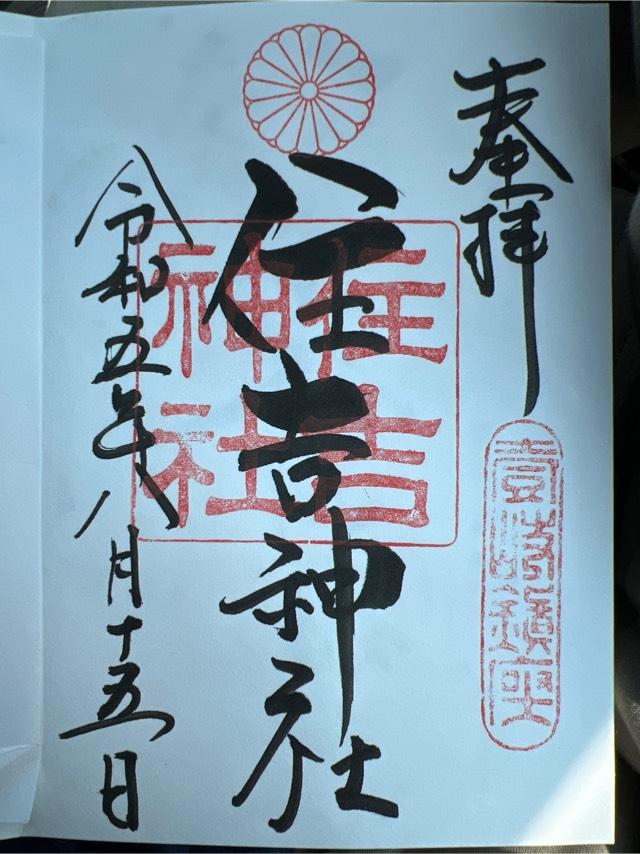 奉拝
壹岐鎮座
住吉神社
住吉
神社
令和五年八月十五日